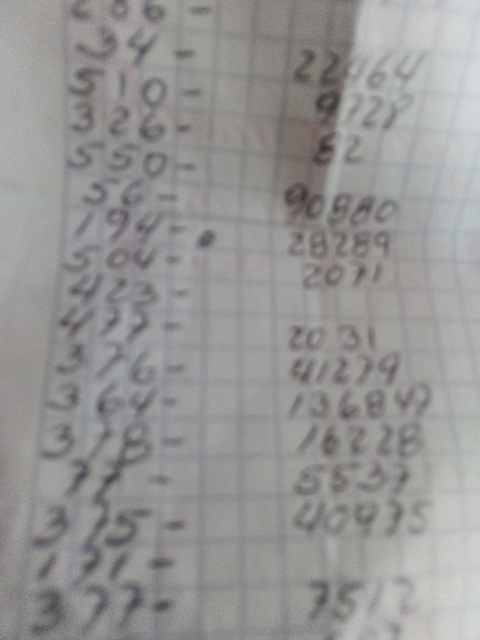 34 - 22464
510 - 9728
326 -
550 - 82
56 - 90880
194 - 28289
504 - 2071
423 -
477 - 2031
376 - 41279
364 - 136847
378 - 16228
77 - 5537
375 - 40975
171 -
377 - 7512